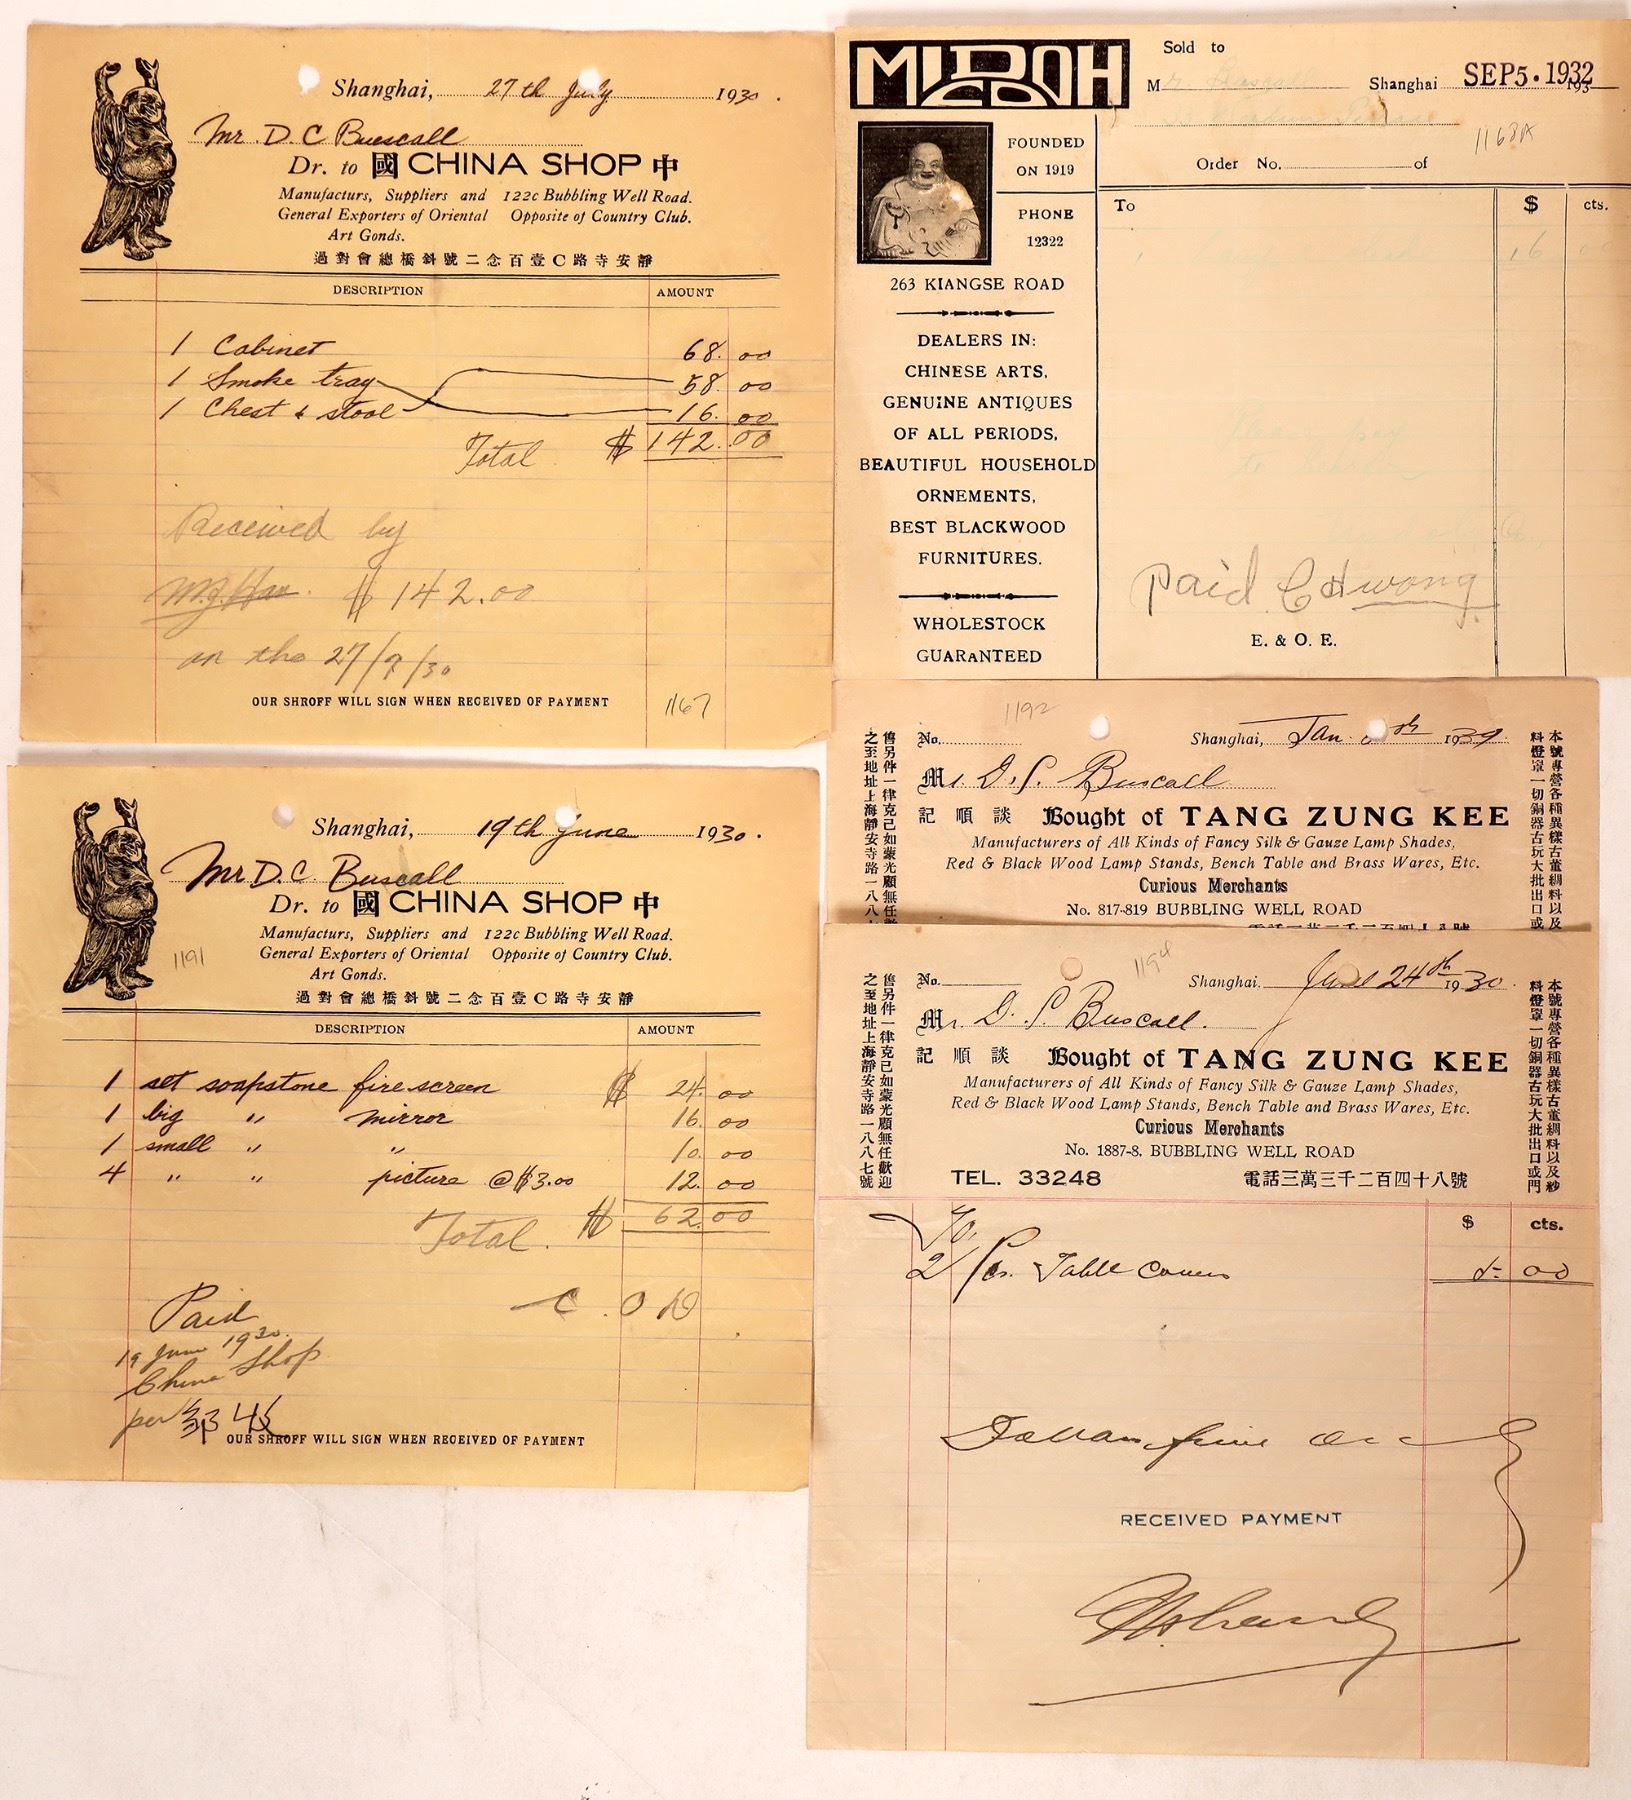 Shanghai, 27th July 1930.
Mr. D. C Buescall
Dr. to 國 CHINA SHOP 中
Manufacturs, Suppliers and 122c Bubbling Well Road.
General Exporters of Oriental Opposite of Country Club.
Art Gonds.
過對會總橋斜號二念百壹C路寺安靜
DESCRIPTION AMOUNT
1 Cabinet 68.00
1 Smoke tray 58.00
1 Chest & stool 16.00
Total $ 142.00
Received by
$ 142.00
on the 27/7/30
OUR SHROFF WILL SIGN WHEN RECEIVED OF PAYMENT
1167
MIDOH
CO
Sold to
Mr Shanghai SEP 5 . 1932 193
1168A
Order No. of
FOUNDED
ON 1919
PHONE
12322
To $ cts.
1 16 00
263 KIANGSE ROAD
DEALERS IN:
CHINESE ARTS,
GENUINE ANTIQUES
OF ALL PERIODS,
BEAUTIFUL HOUSEHOLD
ORNEMENTS,
BEST BLACKWOOD
FURNITURES.
WHOLESTOCK
GUARANTEED
Please pay
to bearer
Paid C H Wong
E. & O. E.
Shanghai, 19th June 1930.
Mr D. C. Buscall
Dr. to 國 CHINA SHOP 中
Manufacturs, Suppliers and 122c Bubbling Well Road.
General Exporters of Oriental Opposite of Country Club.
Art Gonds.
1191
過對會總橋斜號二念百壹C路寺安靜
DESCRIPTION AMOUNT
1 set soapstone fire screen $ 24.00
1 big " mirror 16.00
1 small " " 10.00
4 " " picture @ $3.00 12.00
Total. $ 62.00
Paid C.O D
19 June 1930.
China Shop
per
OUR SHROFF WILL SIGN WHEN RECEIVED OF PAYMENT
1192
No. Shanghai, Jan. th 1939
Mr. D. S. Buscall
記順談 Bought of TANG ZUNG KEE
Manufacturers of All Kinds of Fancy Silk & Gauze Lamp Shades,
Red & Black Wood Lamp Stands, Bench Table and Brass Wares, Etc.
Curious Merchants
No. 817-819 BUBBLING WELL ROAD
本號專營各種異樣古董綢料以及
料燈罩一切銅器古玩大批出口或
售另件一律克己如蒙光顧無任
之至地址上海靜安寺路一八八
No. Shanghai. June 24th 1930.
Mr. D. S. Buscall.
記順談 Bought of TANG ZUNG KEE
Manufacturers of All Kinds of Fancy Silk & Gauze Lamp Shades,
Red & Black Wood Lamp Stands, Bench Table and Brass Wares, Etc.
Curious Merchants
No. 1887-8. BUBBLING WELL ROAD
TEL. 33248 電話三萬三千二百四十八號
本號專營各種異樣古董綢料以及紗
料燈罩一切銅器古玩大批出口或門
售另件一律克己如蒙光顧無任歡迎
之至地址上海靜安寺路一八八七號
$ cts.
To,
2 Pcs. Table covers 5.00
Dollars five only
RECEIVED PAYMENT